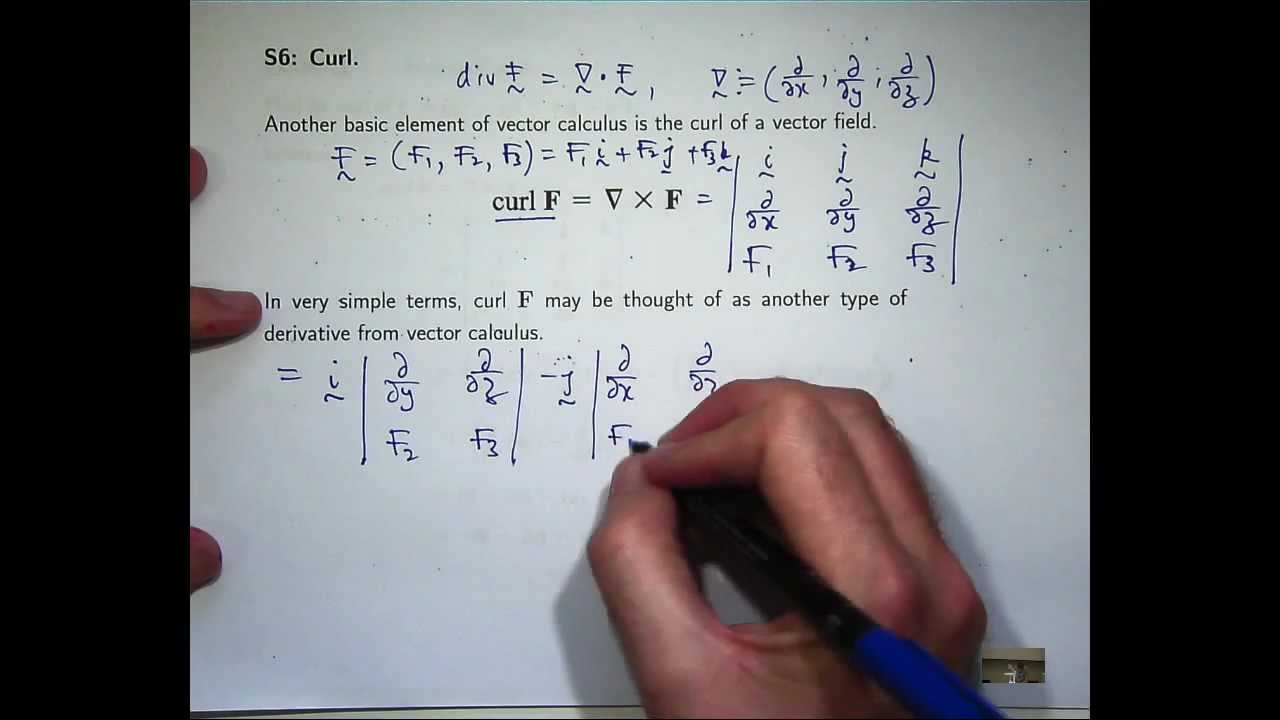 S6: Curl.
div F = ∇ · F , ∇ := (∂/∂x , ∂/∂y , ∂/∂z)
Another basic element of vector calculus is the curl of a vector field.
F = (F₁, F₂, F₃) = F₁ i + F₂ j + F₃ k
curl F = ∇ × F = | i j k |
| ∂/∂x ∂/∂y ∂/∂z |
| F₁ F₂ F₃ |
In very simple terms, curl F may be thought of as another type of
derivative from vector calculus.
= i | ∂/∂y ∂/∂z | - j | ∂/∂x ∂/∂z
| F₂ F₃ | | F₁